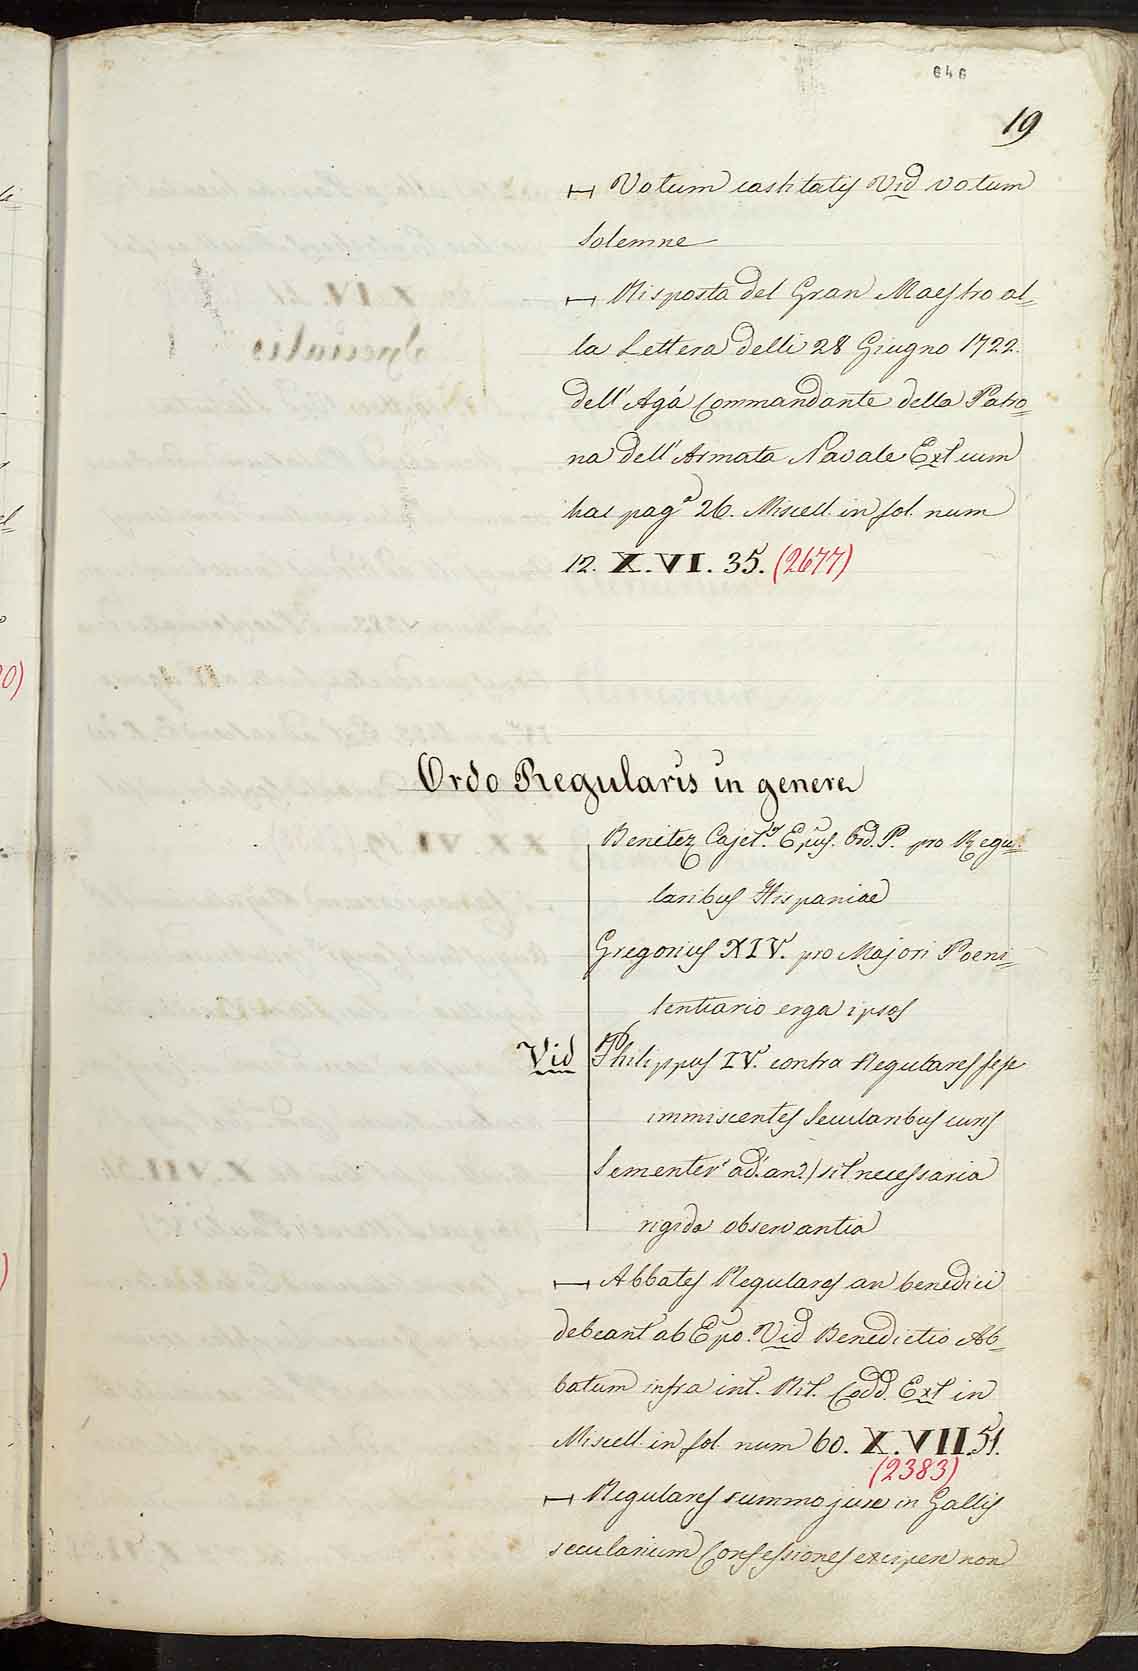 646
19
⊢⊣ Votum castitatis Vid votum
solemne
⊢⊣ Risposta del Gran Maestro al=
la Lettera delli 28 Giugno 1722.
dell' Agá Commandante della Patro=
na dell' Armata Navale Ext cum
hac pag.ª 26. Miscell. in fol. num
12. X. VI. 35. (2677)
Ordo Regularis in genere
Benitez Cajet.s Epus. Ord. P. pro Regu=
laribus Hispaniae
Gregorius XIV. pro Majori Poeni=
tentiario erga ipsos
Vid Philippus IV. contra Regulares sese
immiscentes Secularibus curis
an.) sit necessaria
rigida observantia
⊢⊣ Abbates Regulares an benedici
debeant ab Epo. Vid Benedictio Ab=
batum infra int. Rit. Codd. Ext in
Miscell. in fol. num 60. X. VII. 51.
(2383)
⊢⊣ Regulares summo jure in Gallis
secularium Confessiones excipere non